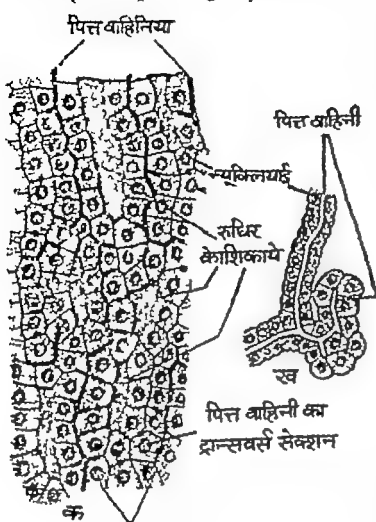 पित्त वाहिनिया
पित्त वाहिनी
न्यूक्लियाई
रुधिर
केाशिकाये
ख
पित्त वाहिनी का
ट्रान्सवर्स सेक्शन
क